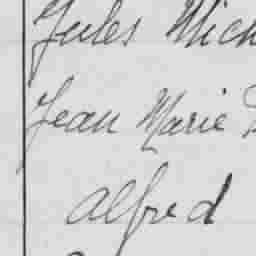 Jules Mich
Jean Marie
Alfred